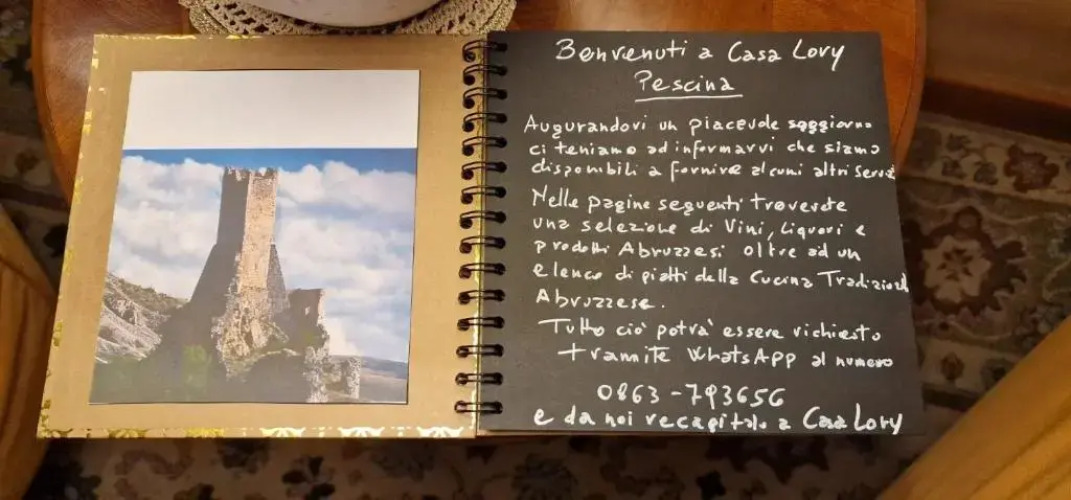 Benvenuti a Casa Lory
Pescina
Augurandovi un piacevole soggiorno
ci teniamo ad informarvi che siamo
disponibili a fornire alcuni altri servizi
Nelle pagine seguenti troverete
una selezione di Vini, Liquori e
prodotti Abruzzesi oltre ad un
elenco di piatti della Cucina Tradizionale
Abruzzese.
Tutto ciò potrà essere richiesto
tramite WhatsApp al numero
0863-793656
e da noi recapitato a Casa Lory